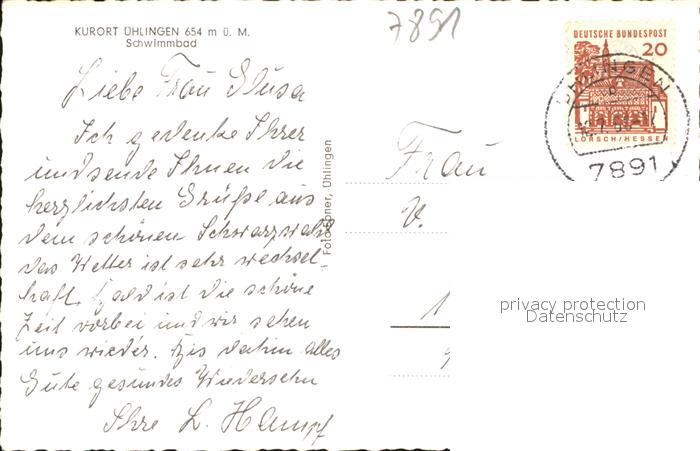 KURORT ÜHLINGEN 654 m ü. M.
Schwimmbad
7891
DEUTSCHE BUNDESPOST
20
LORSCH/HESSEN
ÜHLINGEN
7891
Liebe Frau
Ich gedenke Ihrer
und sende Ihnen die
herzlichsten Grüße aus
dem schönen Schwarzwald
das Wetter ist sehr wechsel-
haft. Bald ist die schöne
Zeit vorbei und wir sehen
uns wieder. Bis dahin alles
Gute gesundes Wiedersehn
Ihre L. Hampf
Foto Ebner, Ühlingen
Frau
V.
1
privacy protection
Datenschutz